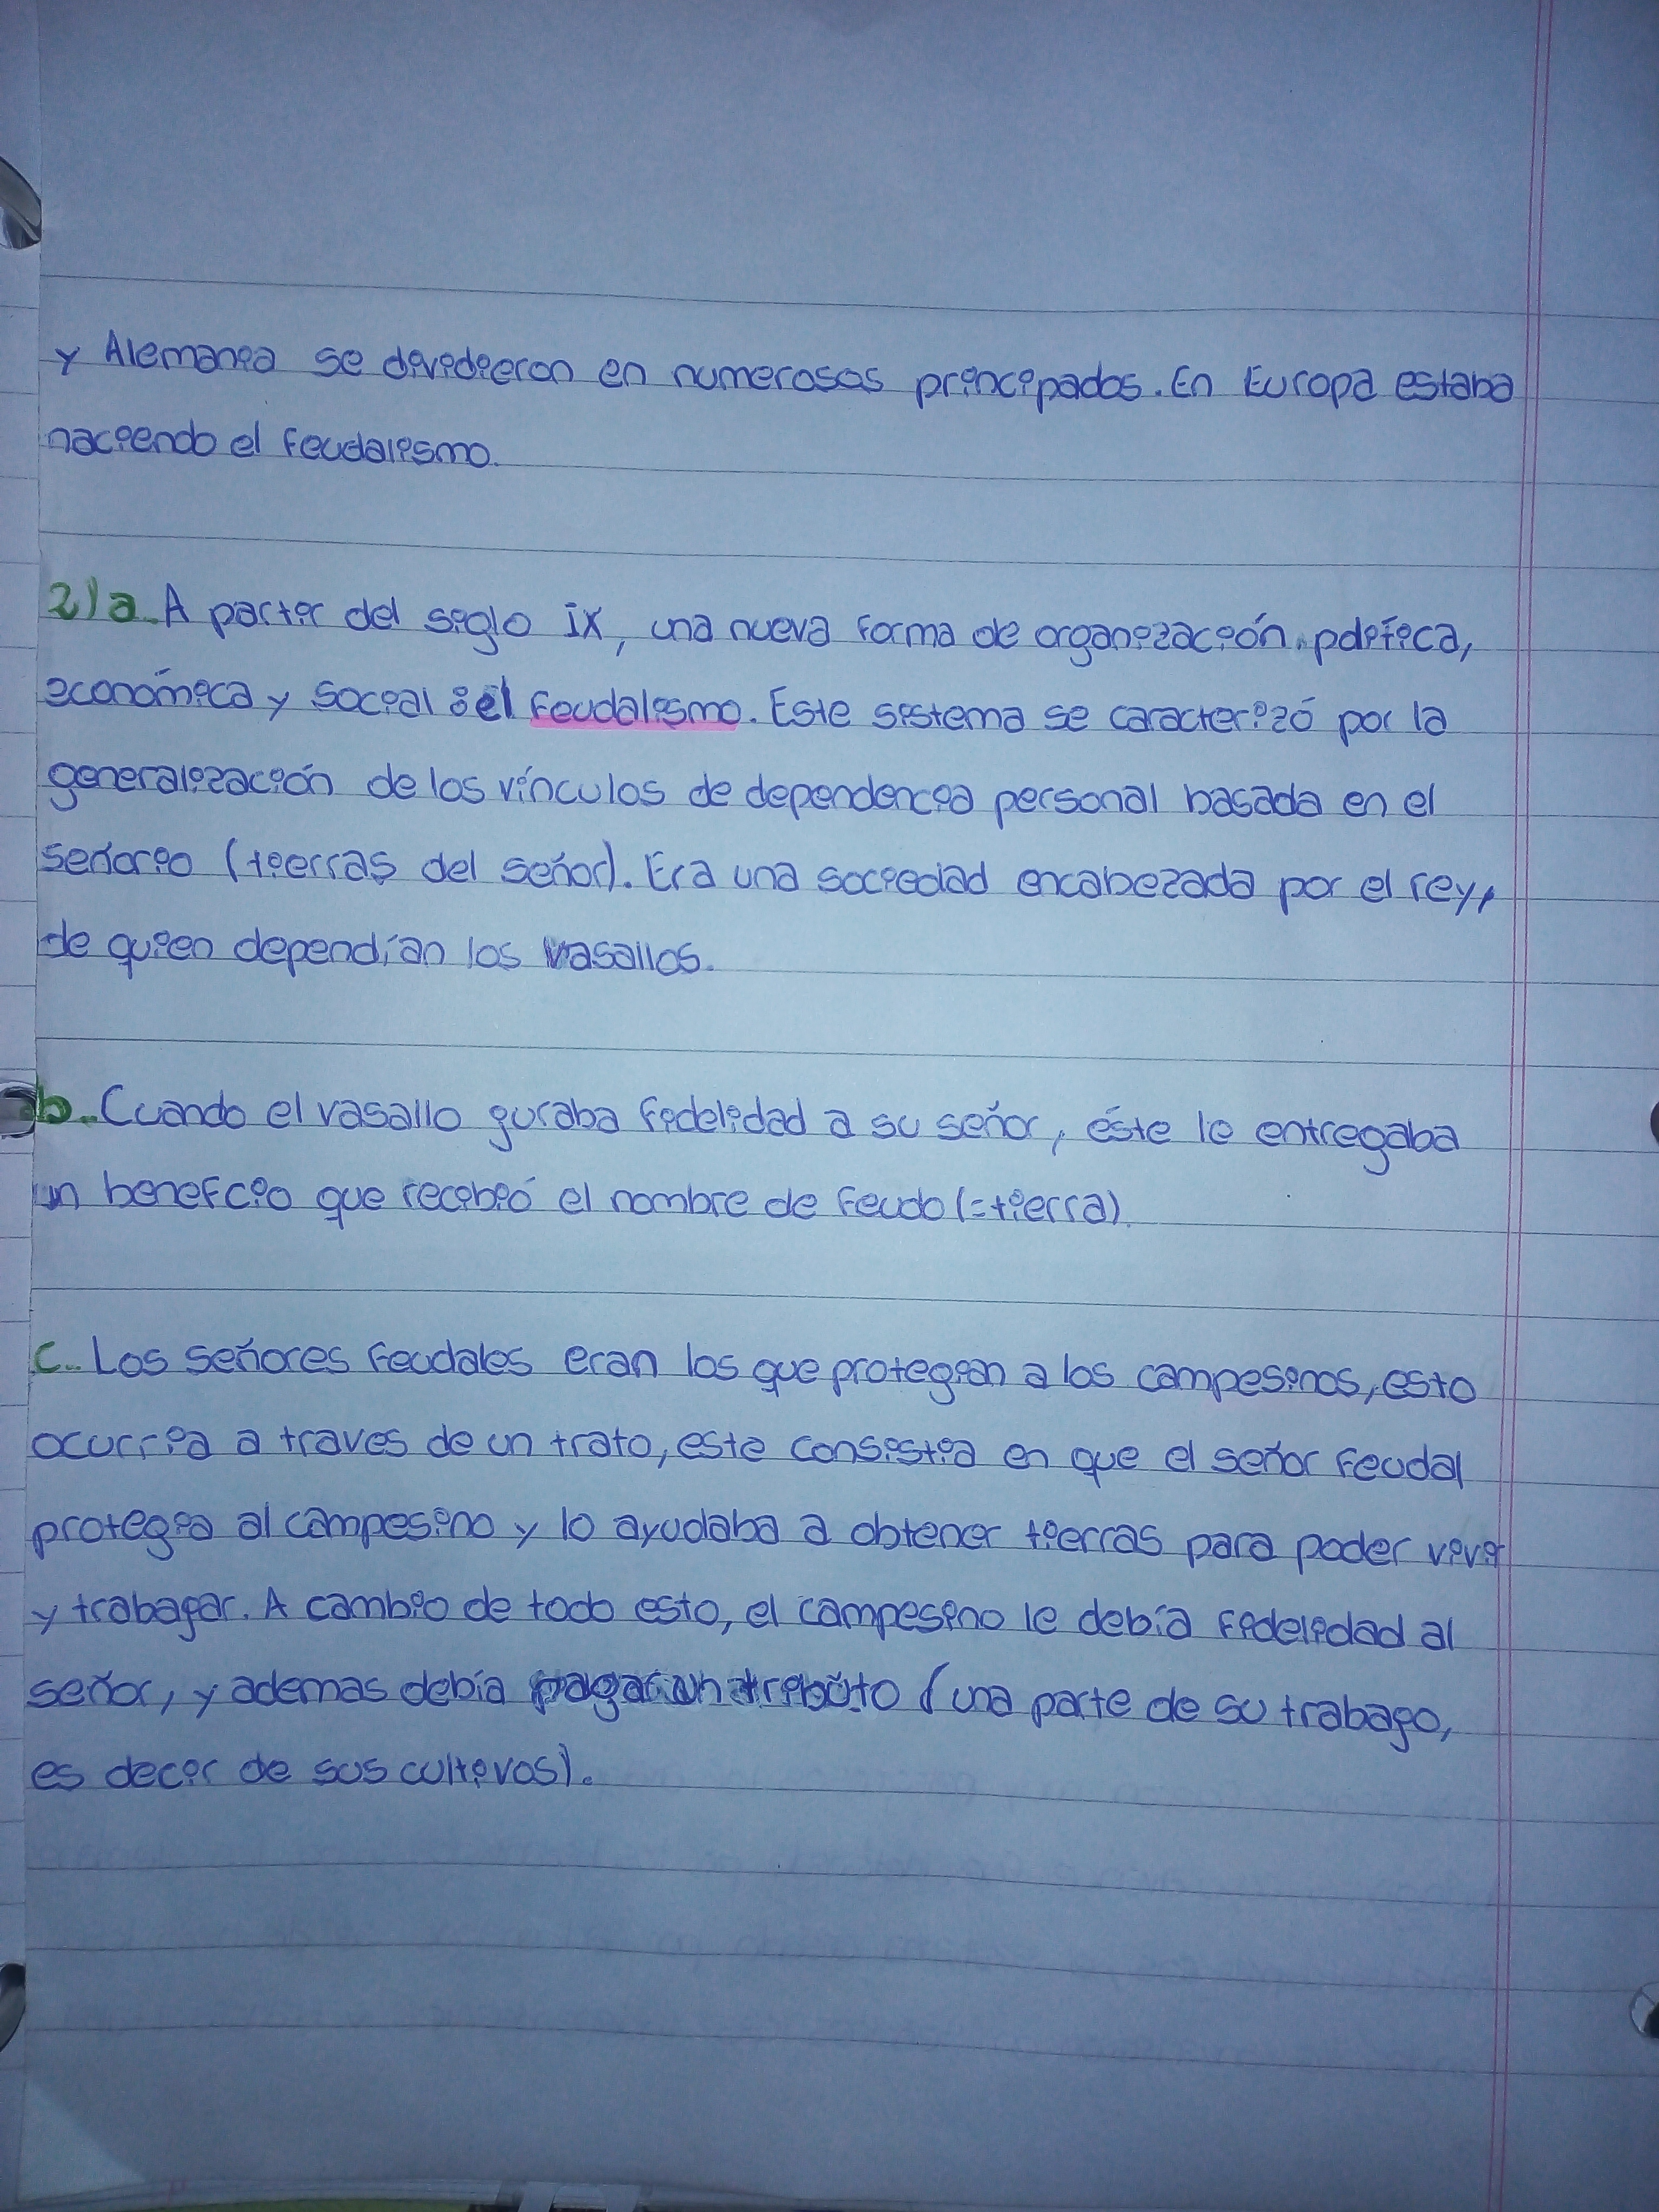 y Alemania se dividieron en numerosos principados. En Europa estaba
naciendo el feudalismo.
2) a. A partir del siglo IX, una nueva forma de organización política,
económica y social: el feudalismo. Este sistema se caracterizó por la
generalización de los vínculos de dependencia personal basada en el
señorio (tierras del señor). Era una sociedad encabezada por el rey,
de quien dependían los vasallos.
b. Cuando el vasallo juraba fidelidad a su señor, éste le entregaba
un benefcio que recibió el nombre de feudo (=tierra).
c. Los señores feudales eran los que protegian a los campesinos, esto
ocurria a traves de un trato, este consistia en que el señor feudal
protegia al campesino y lo ayudaba a obtener tierras para poder vivir
y trabajar. A cambio de todo esto, el campesino le debía fidelidad al
señor, y ademas debía pagar un tributo (una parte de su trabajo,
es decir de sus cultivos).